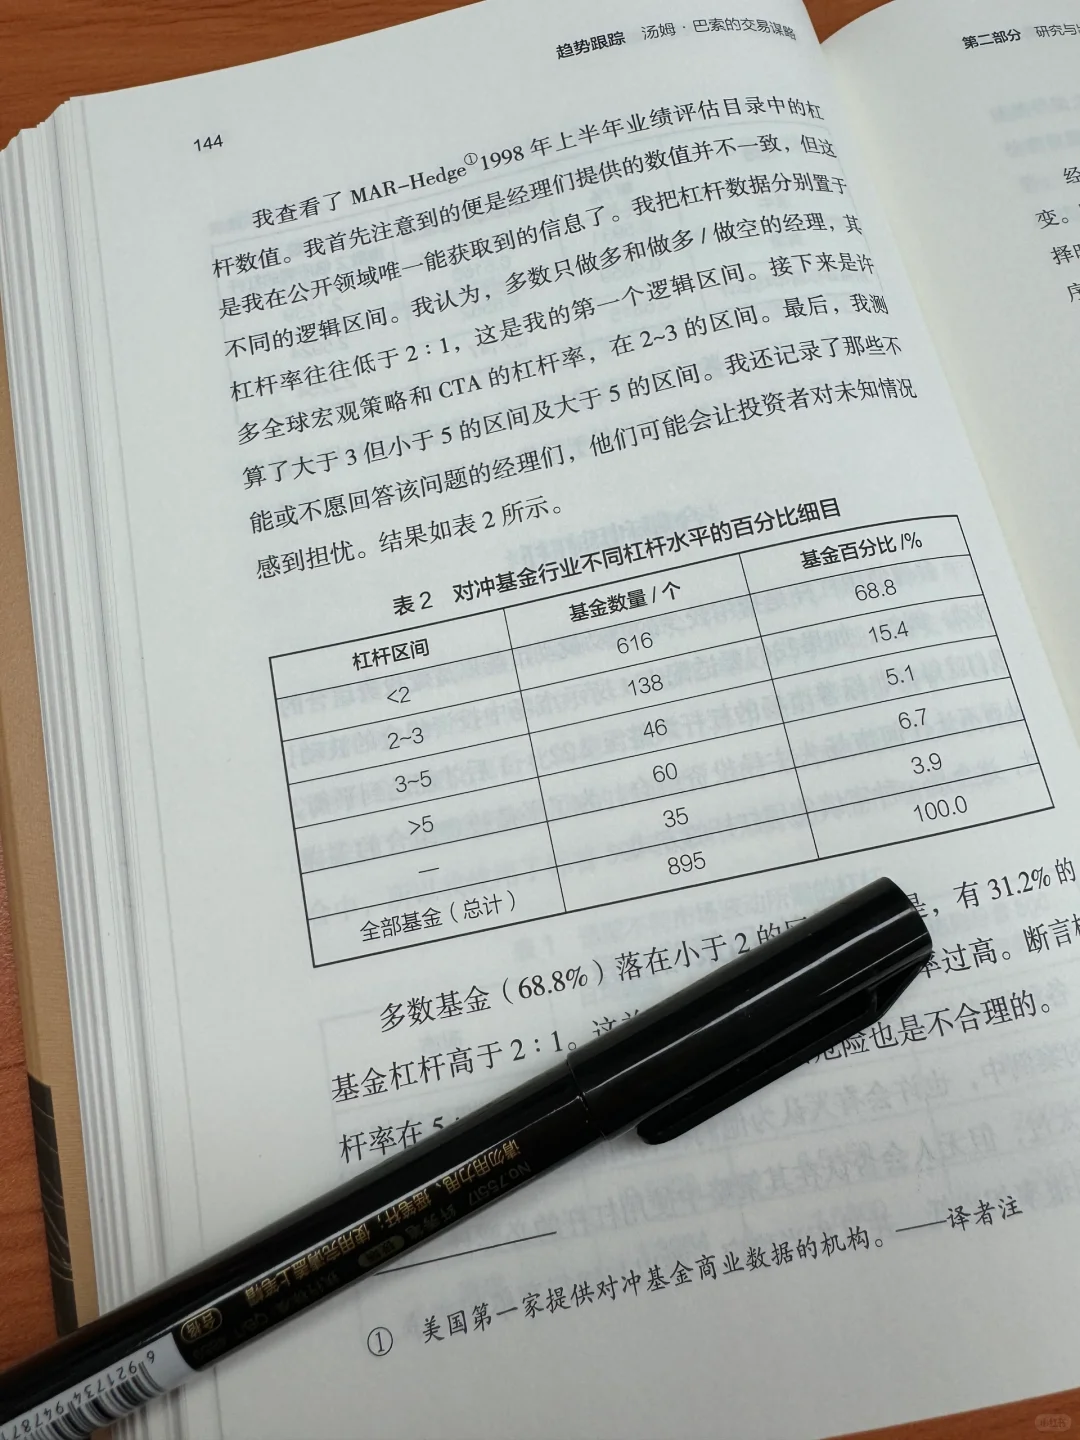 趋势跟踪 汤姆·巴索的交易谋略
144
我查看了 MAR-Hedge①1998 年上半年业绩评估目录中的杠
杆数值。我首先注意到的便是经理们提供的数值并不一致，但这
是我在公开领域唯一能获取到的信息了。我把杠杆数据分别置于
不同的逻辑区间。我认为，多数只做多和做多 / 做空的经理，其
杠杆率往往低于 2∶1，这是我的第一个逻辑区间。接下来是许
多全球宏观策略和 CTA 的杠杆率，在 2~3 的区间。最后，我测
算了大于 3 但小于 5 的区间及大于 5 的区间。我还记录了那些不
能或不愿回答该问题的经理们，他们可能会让投资者对未知情况
感到担忧。结果如表 2 所示。
表 2 对冲基金行业不同杠杆水平的百分比细目
杠杆区间 基金数量 / 个 基金百分比 /%
<2 616 68.8
2~3 138 15.4
3~5 46 5.1
>5 60 6.7
— 35 3.9
全部基金（总计） 895 100.0
多数基金（68.8%）落在小于 2 的 是，有 31.2% 的
基金杠杆高于 2∶1。 率过高。断言杠
杆率在 5 危险也是不合理的。
① 美国第一家提供对冲基金商业数据的机构。——译者注
第二部分 研究与
经
变。
择时
序
No.75517
请勿用力甩、摇笔杆；使用完请盖上笔帽
合格
6921734947871
小红书